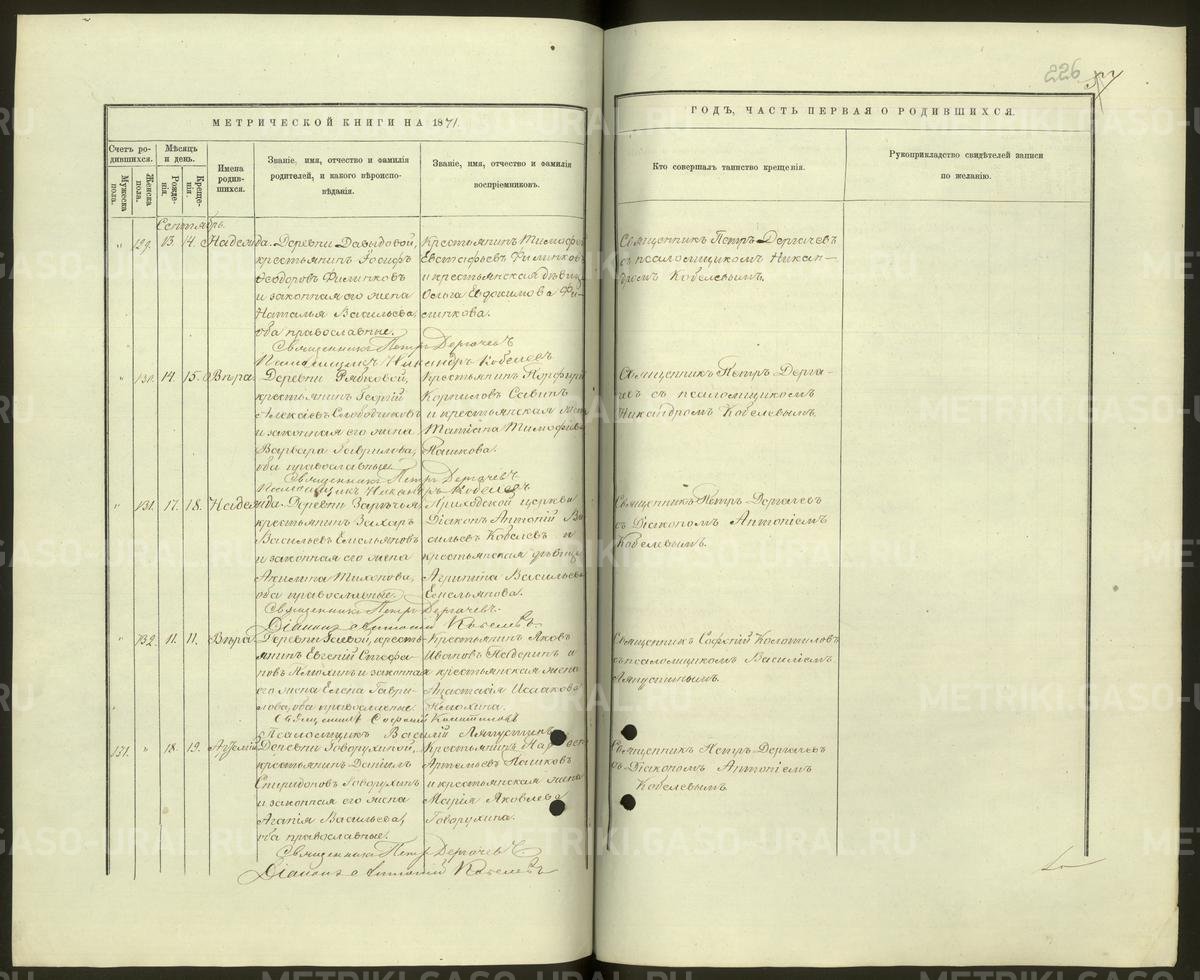 226
МЕТРИЧЕСКОЙ КНИГИ НА 1871.
ГОДЪ, ЧАСТЬ ПЕРВАЯ О РОДИВШИХСЯ.
Счетъ родившихся.
Мужеска пола.
Женска пола.
Мѣсяцъ и день.
Рожденія.
Крещенія.
Имена родившихся.
Званіе, имя, отчество и фамилія родителей, и какого вѣроисповѣданія.
Званіе, имя, отчество и фамилія воспріемниковъ.
Кто совершалъ таинство крещенія.
Рукоприкладство свидѣтелей записи по желанію.
Сентябрь.
" 129. 13. 14. Надежда.
Деревни Давыдовой,
крестьянинъ Іосифъ
Ѳеодоровъ Филинковъ
и законная его жена
Наталья Васильева,
оба православные.
Крестьянинъ Тимофей
Евстафьевъ Филинковъ
и крестьянская дѣвица
Ольга Евдокимова Фи-
линкова.
Священникъ Петръ Дергачевъ
съ псаломщикомъ Никан-
дромъ Кобелевымъ.
Священникъ Петръ Дергачевъ
Псаломщикъ Никандръ Кобелевъ
" 130. 14. 15. Вѣра
Деревни Рябковой,
крестьянинъ Георгій
Алексѣевъ Слободчиковъ
и законная его жена
Варвара Гаврилова,
оба православные
Крестьянинъ Порфирій
Корниловъ Савинъ
и крестьянская жена
Татіана Тимофѣева
Пашкова.
Священникъ Петръ Дерга-
чевъ съ псаломщикомъ
Никандромъ Кобелевымъ
Священникъ Петръ Дергачевъ
Псаломщикъ Никандръ Кобелевъ
" 131. 17. 18. Надежда.
Деревни Зарѣчья,
крестьянинъ Захаръ
Васильевъ Емельяновъ
и законная его жена
Акилина Тихонова,
оба православные.
Приходской церкви
Діаконъ Антоній Ва
сильевъ Кобелевъ и
крестьянская дѣвица
Агрипина Васильева
Емельянова.
Священникъ Петръ Дергачевъ
съ Діакономъ Антоніемъ
Кобелевымъ.
Священникъ Петръ Дергачевъ.
Діаконъ Антоній Кобелевъ.
" 132. 11. 11. Вѣра
Деревни Гаевой, кресть-
янинъ Евгеній Стефа-
новъ Жмохинъ и законная
его жена Елена Гаври-
лова, оба православные.
Крестьянинъ Яковъ
Ивановъ Падеринъ и
крестьянская жена
Анастасія Исаакова
Жмохина.
Священникъ Софоній Колотиловъ
съ псаломщикомъ Василіемъ
Ляпустинымъ.
Священникъ Софоній Колотиловъ
Псаломщикъ Василій Ляпустинъ
131. " 18. 19.
Деревни Говорухиной,
крестьянинъ Даніилъ
Спиридоновъ Говорухинъ
и законная его жена
Агапія Васильева,
оба православные.
Крестьянинъ
Артемьевъ Пашковъ
и крестьянская жена
Марія Яковлева
Говорухина.
Священникъ Петръ Дергачевъ
съ Діакономъ Антоніемъ
Кобелевымъ
Священникъ Петръ Дергачевъ
Діаконъ Антоній Кобелевъ
METRIKI.GASO-URAL.RU